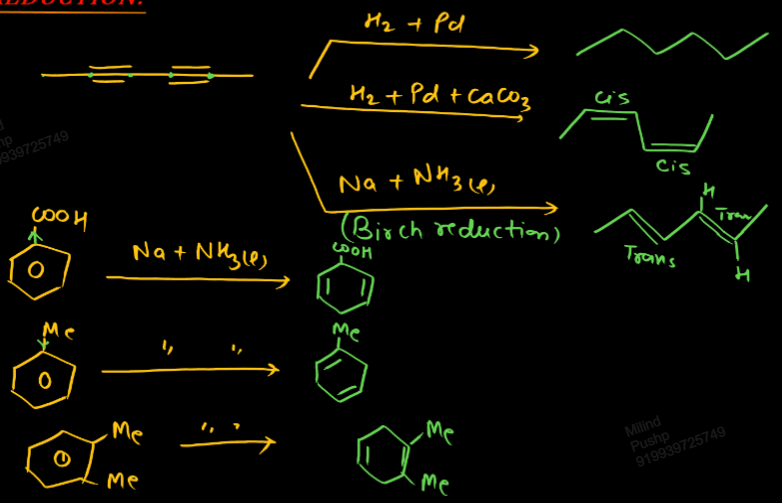 REDUCTION:
H₂ + Pd
H₂ + Pd + CaCO₃
cis
cis
Na + NH₃(l)
(Birch reduction)
H
Tran
Trans
H
COOH
Na + NH₃(l)
COOH
Me
" "
Me
Me
Me
" "
Me
Me
939725749
Milind
Pushp
919939725749